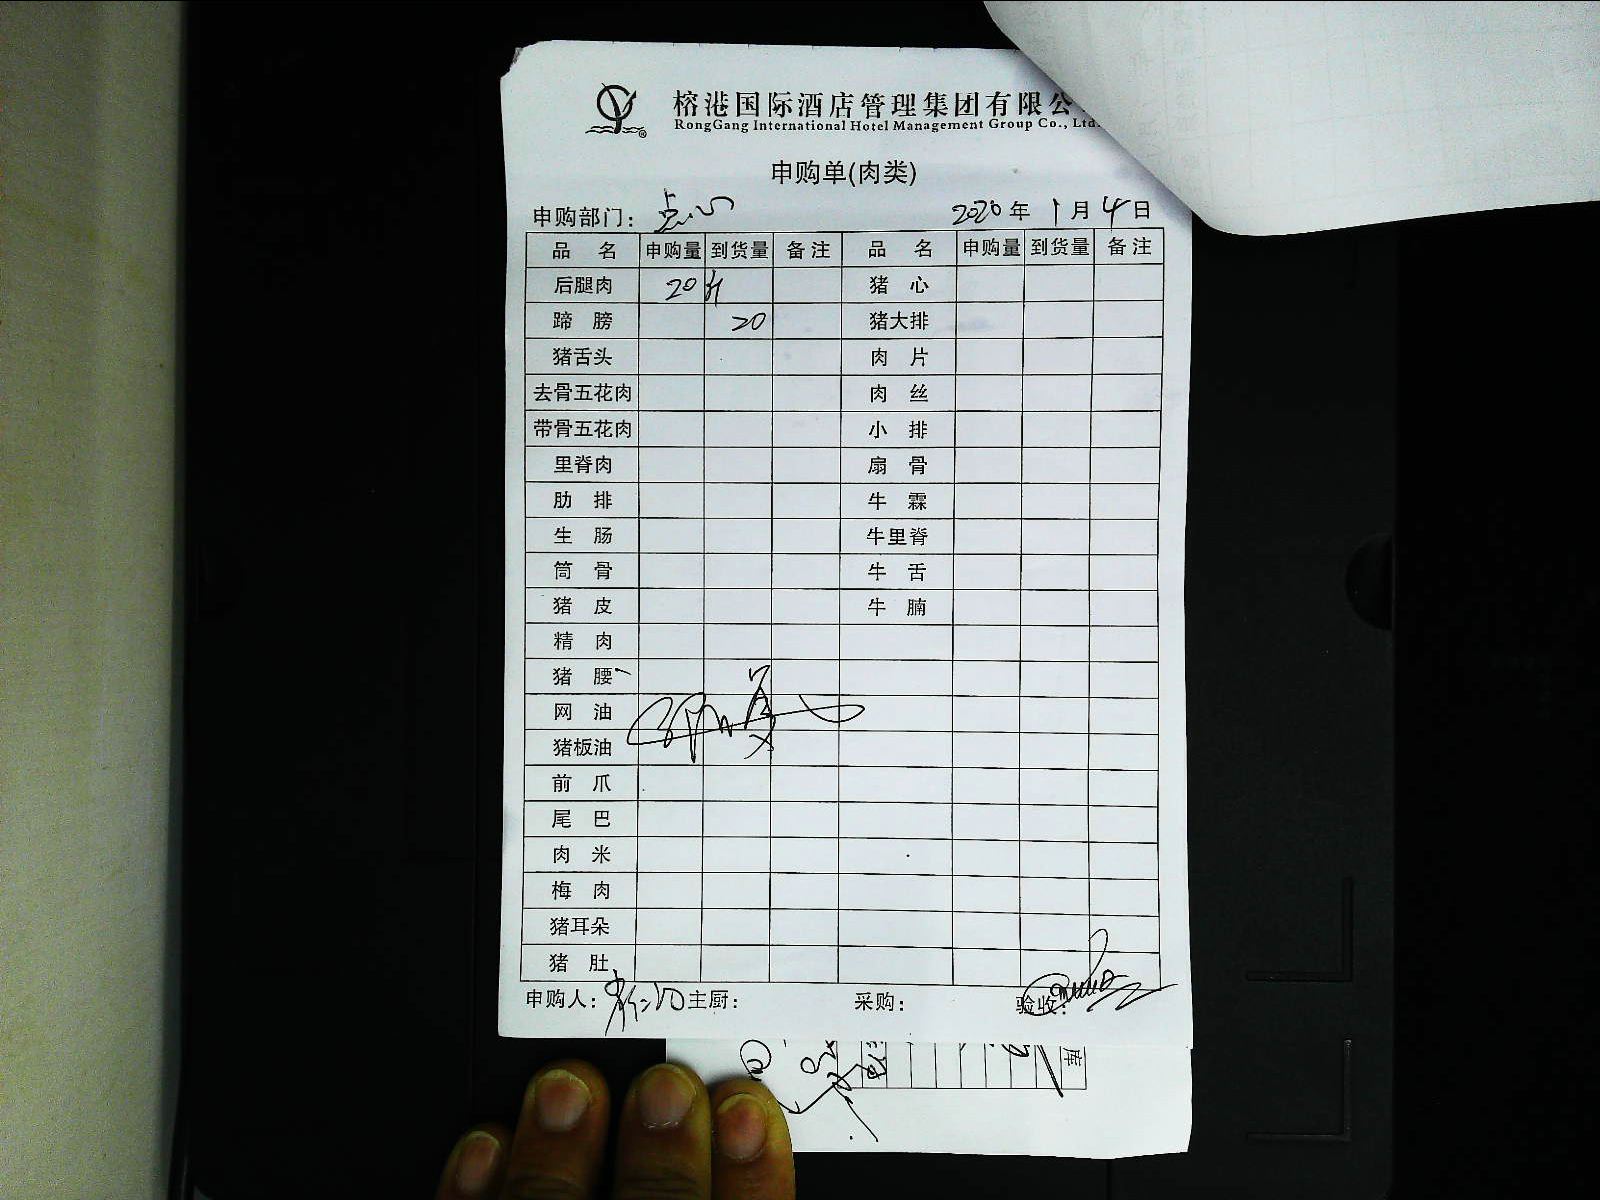 榕港国际酒店管理集团有限公
RongGang International Hotel Management Group Co., Ltd.
申购单(肉类)
申购部门： 点心 2020年 1月 4日
品 名 申购量 到货量 备注 品 名 申购量 到货量 备注
后腿肉 20斤 猪 心
蹄 膀 20 猪大排
猪舌头 肉 片
去骨五花肉 肉 丝
带骨五花肉 小 排
里脊肉 扇 骨
肋 排 牛 霖
生 肠 牛里脊
筒 骨 牛 舌
猪 皮 牛 腩
精 肉
猪 腰
网 油
猪板油
前 爪
尾 巴
肉 米
梅 肉
猪耳朵
猪 肚
申购人： 主厨： 采购： 验收：
库